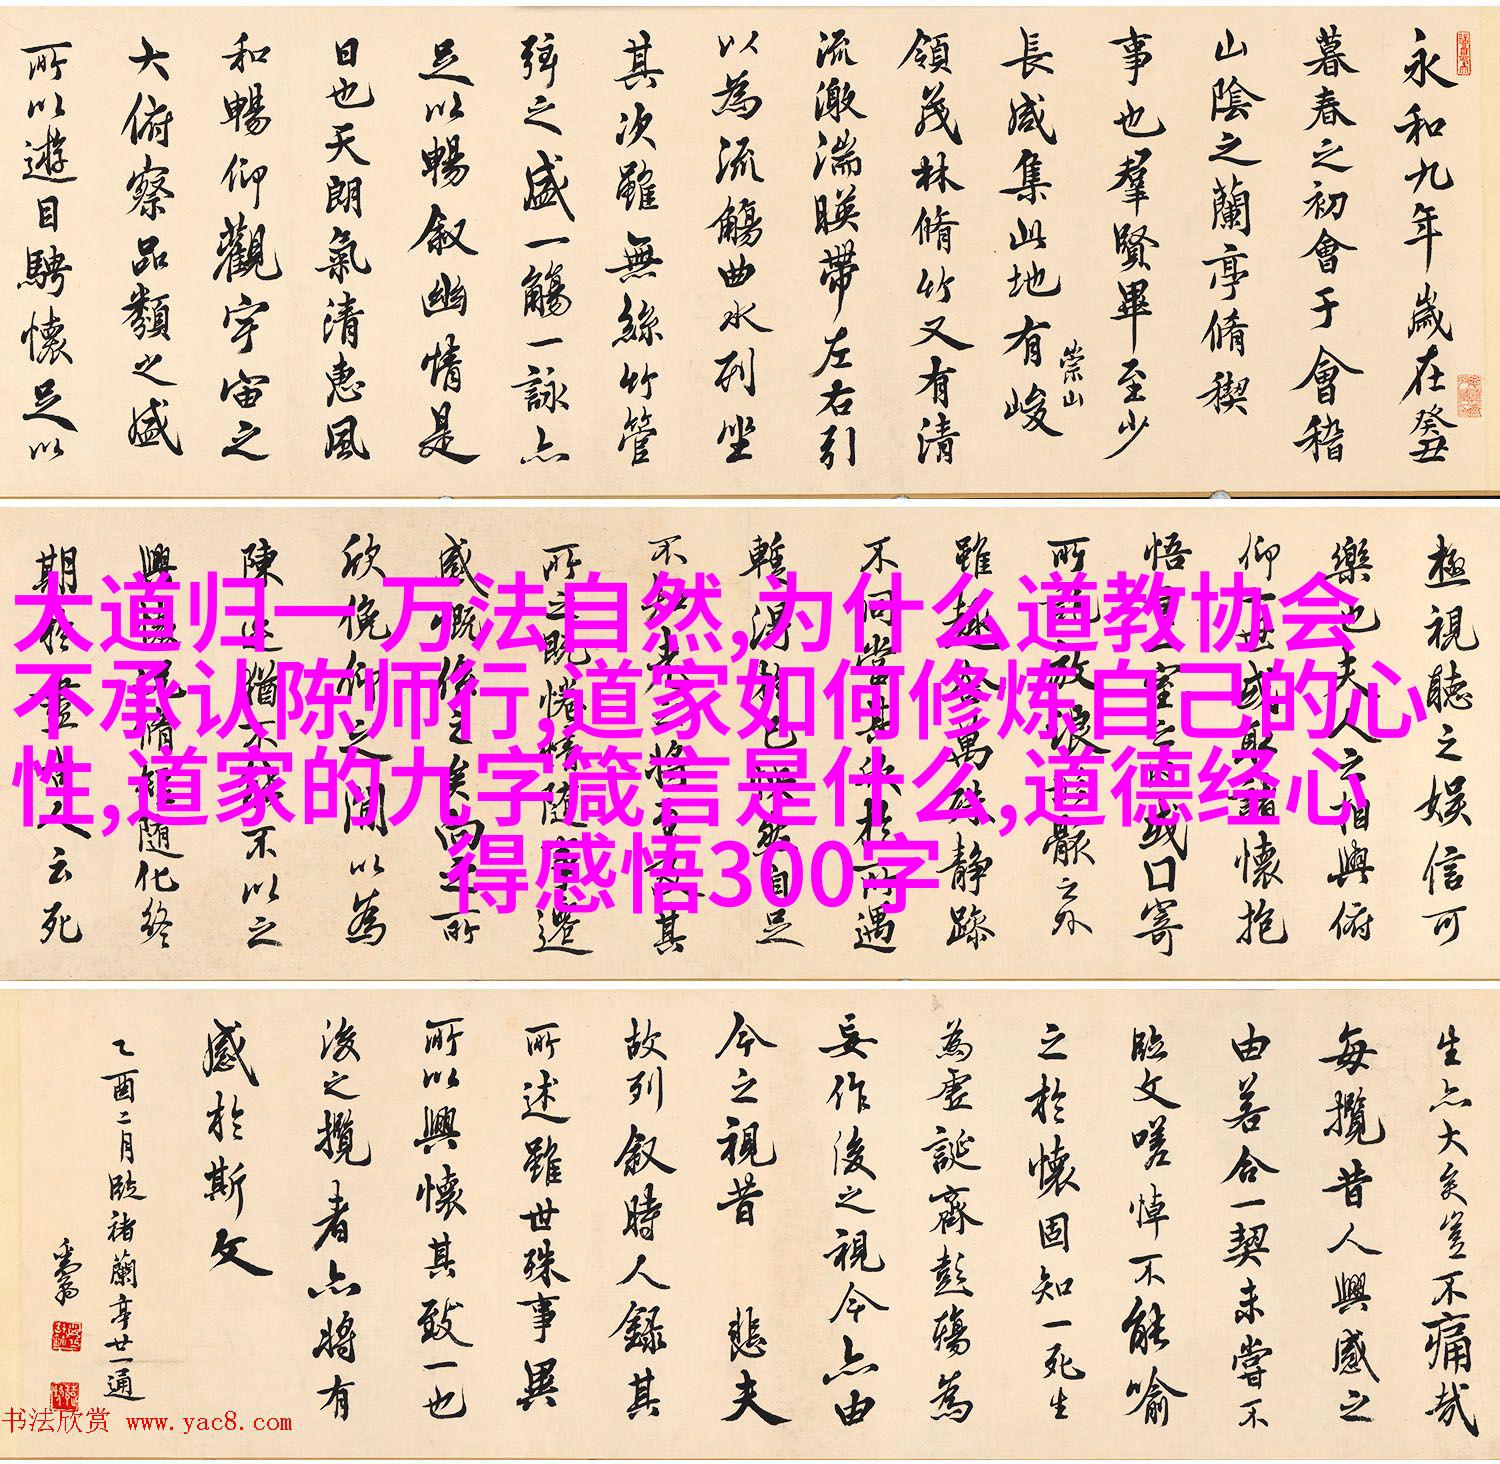 永和九年歲在癸丑
暮春之初會于會稽
山陰之蘭亭脩稧
事也羣賢畢至少
長咸集此地有峻
崇山
領茂林脩竹又有清
流激湍暎帶左右引
以為流觴曲水列坐
其次雖無絲竹管
弦之盛一觴一詠亦
足以暢叙幽情是
日也天朗氣清惠風
和暢仰觀宇宙之
大俯察品類之盛
所以遊目騁懷足以
極視聽之娛信可
樂也夫人之相與俯
仰一世或取諸懷抱
悟言一室之內或口寄
所託放浪形骸之外
雖趣舍萬殊靜躁
不同當其欣於所遇
暫得於己快然自足
不知老之將至及其
所之既惓情隨事遷
感慨係之矣向之所
欣俛仰之間以為
陳迹猶不能不以之
興懷況脩短隨化終
期於盡古人云死
大道归一 万法自然,为什么道教协会
不承认陈师行,道家如何修炼自己的心
性,道家的九字箴言是什么,道德经心
得感悟300字
生亦大矣豈不痛哉
每攬昔人興感之
由若合一契未嘗不
臨文嗟悼不能喻
之於懷固知一死生
為虛誕齊彭殤為
妄作後之視今亦由
今之視昔 悲夫
故列叙時人錄其
所述雖世殊事異
所以興懷其致一也
後之攬者亦將有
感於斯文
乙酉二月臨褚蘭亭廿一通
书法欣赏 www.yac8.com